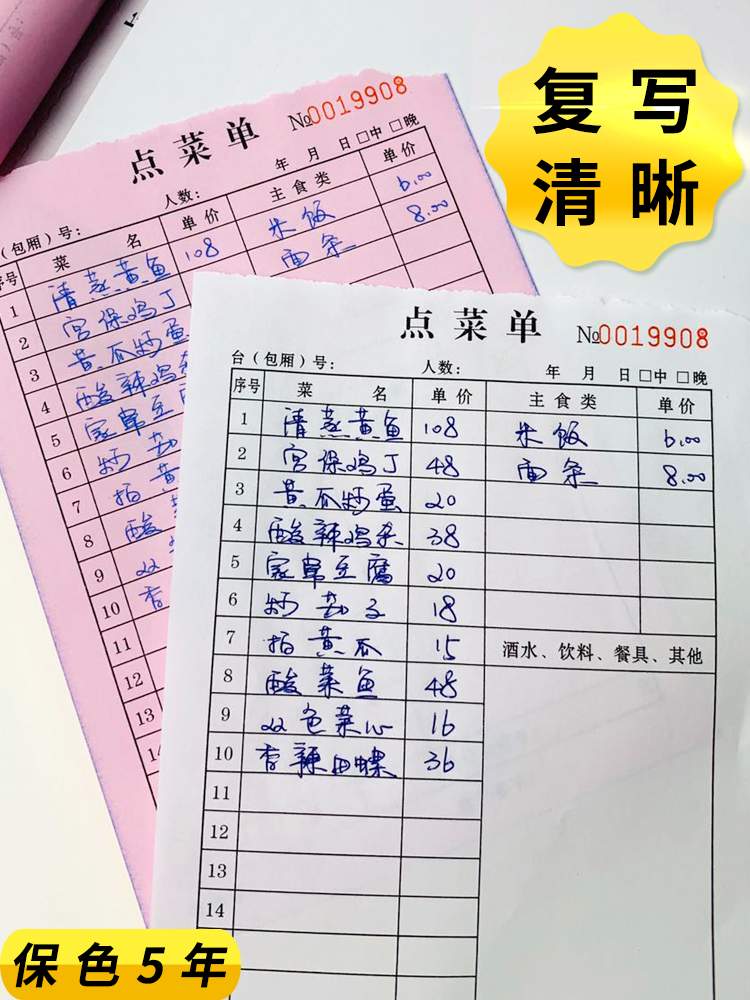 复写
清晰
点菜单 №0019908
年 月 日 □中 □晚
(包厢)号: 人数:
序号 菜 名 单价 主食类 单价
1 清蒸黄鱼 108 米饭 6.00
2 宫保鸡丁 面条 8.00
3 黄瓜炒蛋
4 酸辣鸡杂
5 家常豆腐
6 炒
7 拍黄
8 酸
9 双
10 香
11
12
13
点菜单 №0019908
台(包厢)号: 人数: 年 月 日 □中 □晚
序号 菜 名 单价 主食类 单价
1 清蒸黄鱼 108 米饭 6.00
2 宫保鸡丁 48 面条 8.00
3 黄瓜炒蛋 20
4 酸辣鸡杂 38
5 家常豆腐 20
6 炒 子 18
7 拍黄瓜 15 酒水、饮料、餐具、其他
8 酸菜鱼 48
9 双色菜心 16
10 香辣田螺 36
11
12
13
14
保色5年